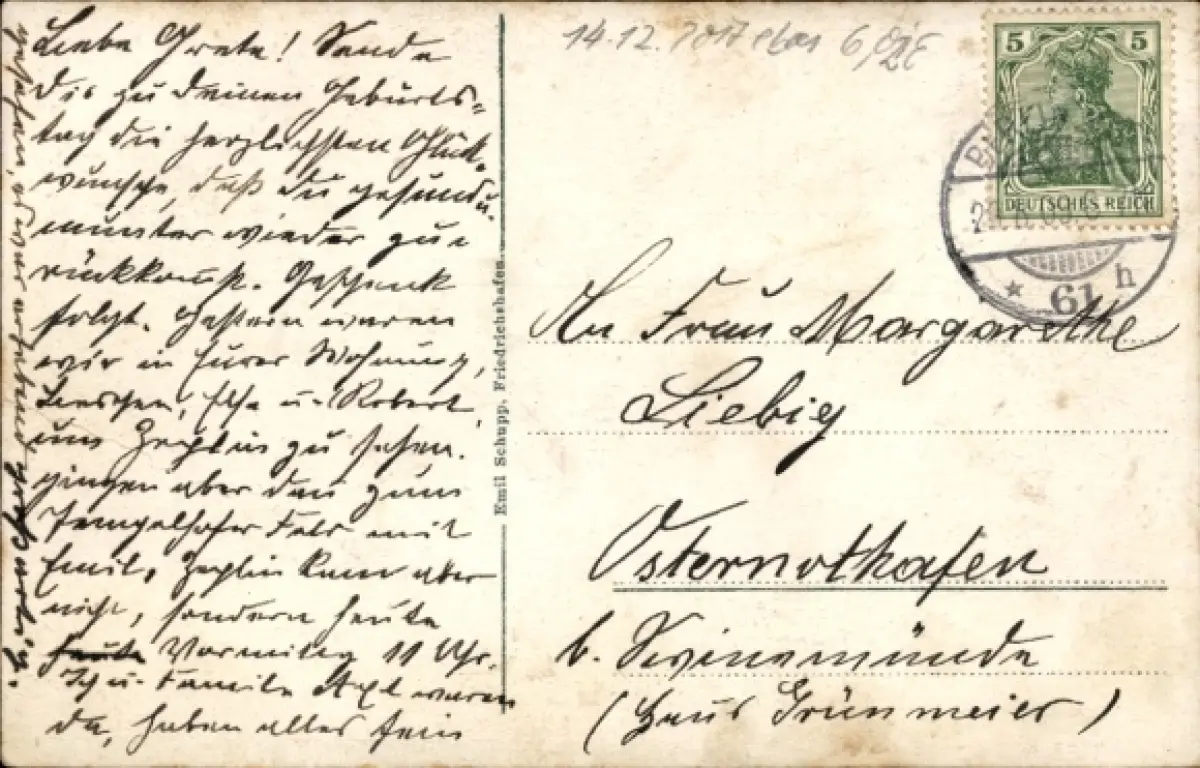 Liebe Grete! Sende
dir zu deinen Geburts-
tag die herzlichsten Glück-
wünsche, daß du gesund u.
munter wieder zu-
rückkomst. Geschenk
folgt. Gestern waren
wir in Eurer Wohnung,
Lenchen, Else u. Robert,
um Zeplin zu sehen.
gingen aber dan zum
Tempelhofer Feld mit
Emil, Zeplin kam aber
nicht, sondern heute
heute Vormittag 11 Uhr.
Ich u. Familie Axl waren
da, haben alles fein
gesehen, es war
Emil Schupp, Friedrichshafen.
14.12.
5 5
DEUTSCHES REICH
61 h
An Frau Margarethe
Liebig
Osternothafen
b. Swinemünde
(Haus Grünmeier)